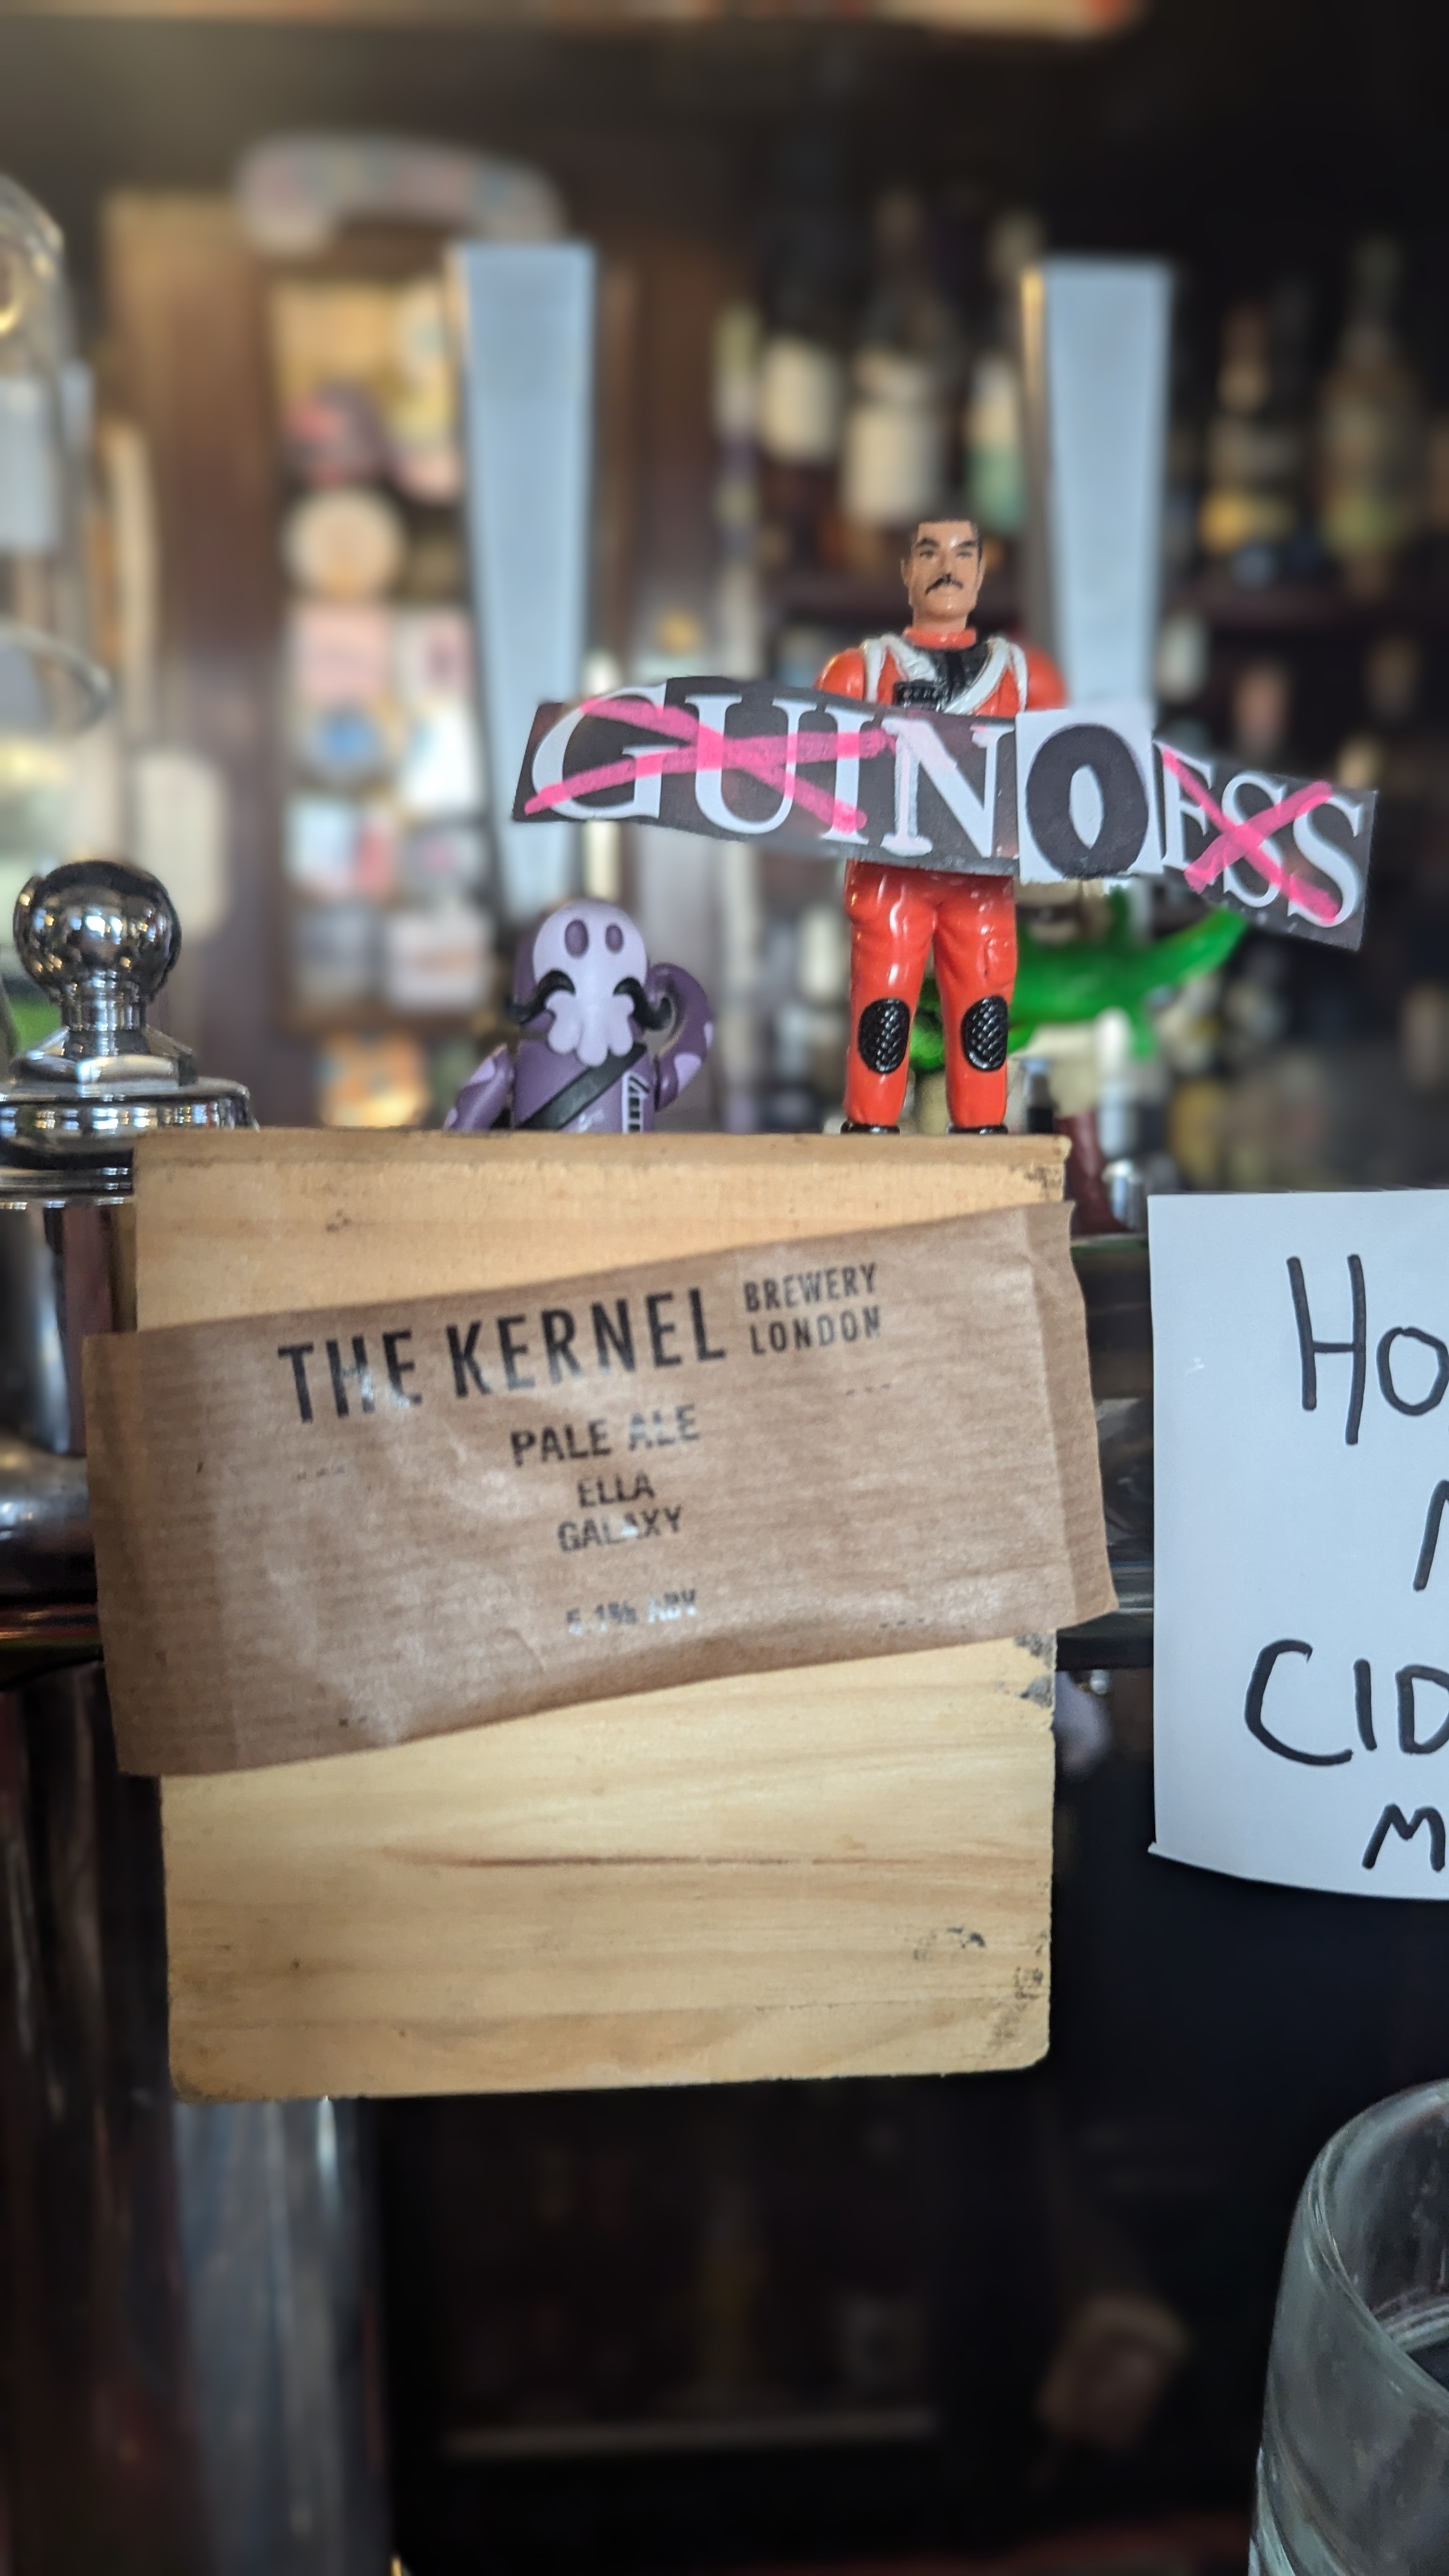 GUINOESS
THE KERNEL BREWERY
LONDON
PALE ALE
ELLA
GALAXY
5.1% ABV
HO
N
CID
M